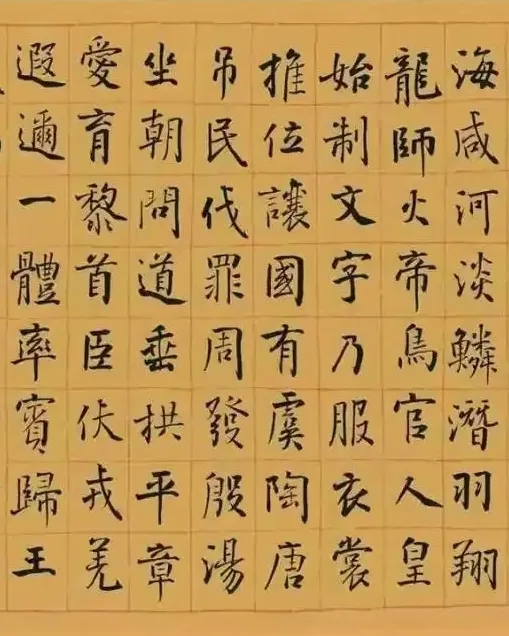 海咸河淡鱗潛羽翔
龍師火帝鳥官人皇
始制文字乃服衣裳
推位讓國有虞陶唐
吊民伐罪周發殷湯
坐朝問道垂拱平章
愛育黎首臣伏戎羌
遐邇一體率賓歸王